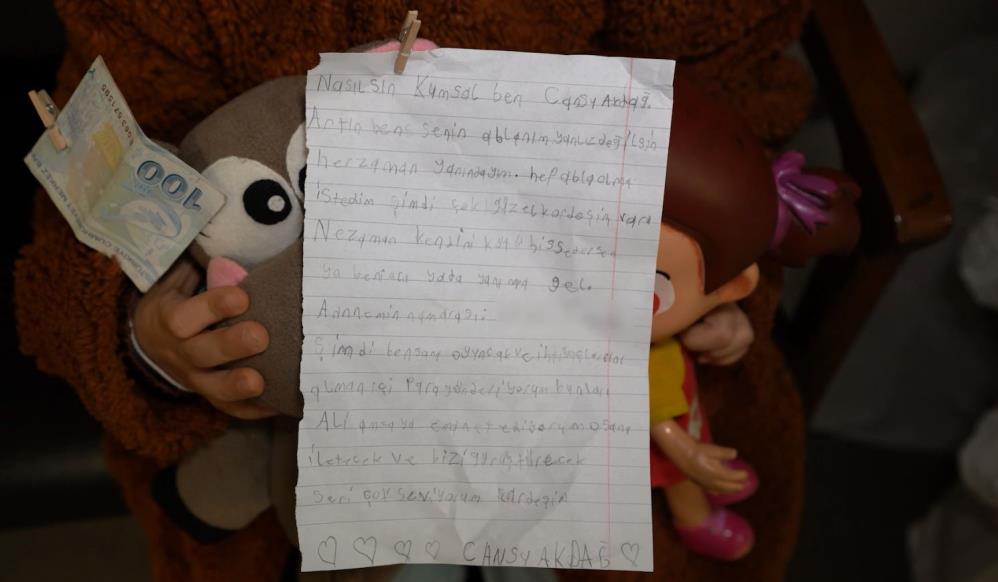 Nasılsın Kumsal ben Cansy Akdağ.
Artın ben senin ablanım yanlız değilsin
herzaman yanındayım. hep abla olma
istedim şimdi çok güzel kardeşim var
Nezaman kendini kötü hissedersen
ya beni ara yada yanıma gel.
Annemin numarası:
Şimdi ben sana oyuncak ve ihtiyaçlarını
alman içi Para gönderiyorum bunları
Ali amcaya emanet ediyorum o sana
iletecek ve bizi görüştürecek
seni çok seviyorum kardeşin
CANSY AKDAĞ
100